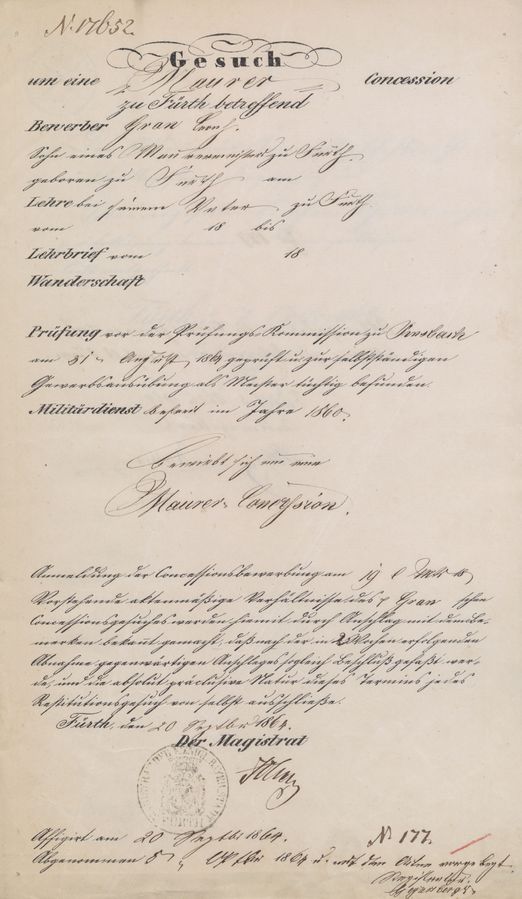 N. 17652.
Gesuch
um eine Maurer Concession
zu Fürth betreffend
Bewerber Gran Leonh.
Sohn eines Maurermeisters zu Fürth
geboren zu Fürth am
Lehre bei seinem Vater zu Fürth
vom 18 bis
Lehrbrief vom 18
Wanderschaft
Prüfung vor der Prüfungs-Kommission zu Ansbach
am 31. August 1864 geprüft u. zur selbstständigen
Gewerbsausübung als Meister tüchtig befunden.
Militärdienst befreit im Jahre 1860.
Bewirbt sich um eine
Maurer-Concession.
Anmeldung der Concessionsbewerbung am 19
Vorstehende aktenmäßige Verhältnisse des Gran schen
Concessionsgesuches werden hiemit durch Anschlag mit dem Be-
merken bekannt gemacht, daß nach der in 2 Wochen erfolgenden
Abnahme gegenwärtigen Anschlages sogleich Beschluß gefaßt wer-
de, um die absolut präclusive Natur dieses Termins jedes
Restitutionsgesuch von selbst ausschließe.
Fürth, den 20 Septbr 1864.
Der Magistrat
FÜRTH
Affigirt am 20 Septbr 1864.
N. 177.
Abgenommen 5 Oktbr 1864 u. mit den Akten vorgelegt